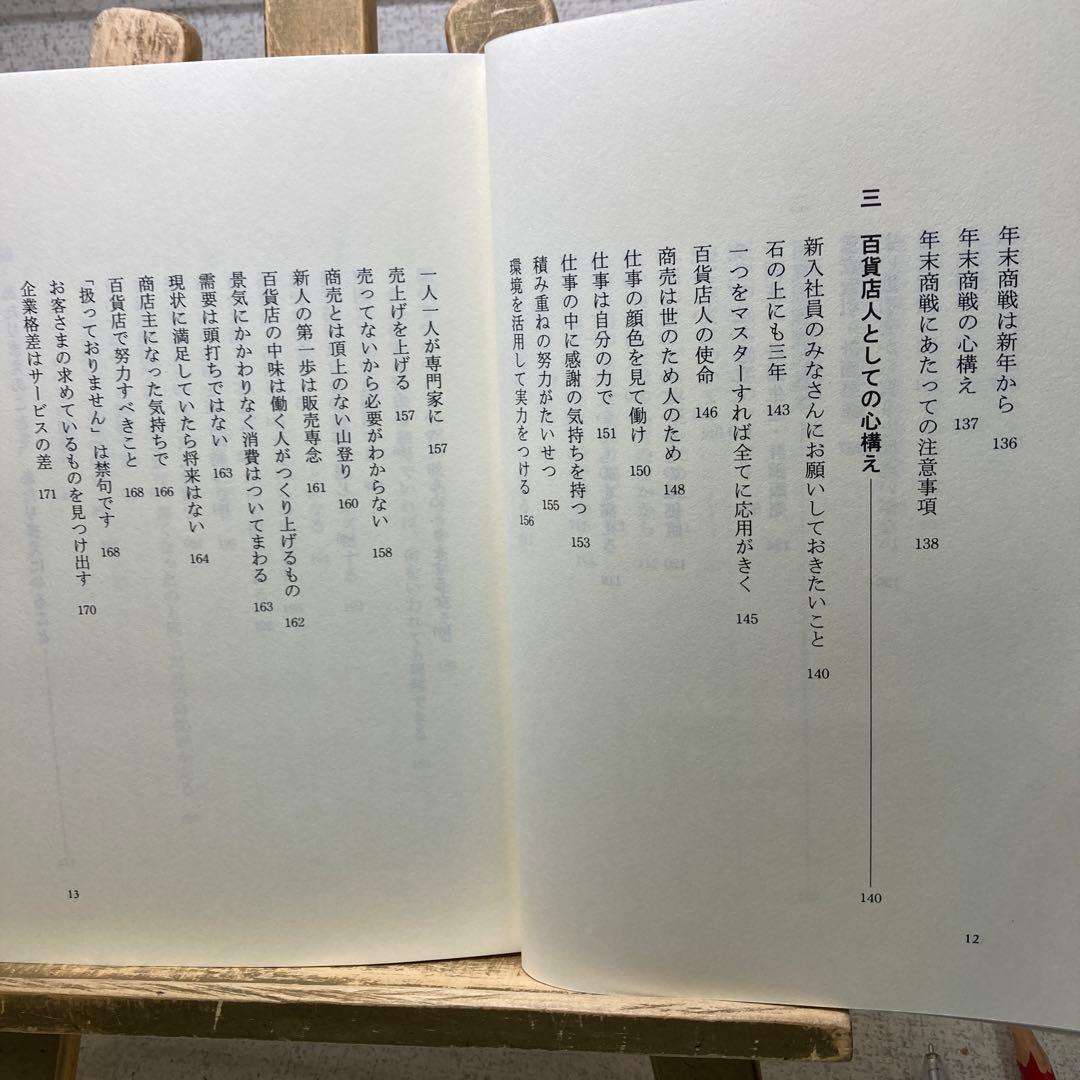 年末商戦は新年から 136
年末商戦の心構え 137
年末商戦にあたっての注意事項 138
三 百貨店人としての心構え 140
新入社員のみなさんにお願いしておきたいこと 140
石の上にも三年 143
一つをマスターすれば全てに応用がきく 145
百貨店人の使命 146
商売は世のため人のため 148
仕事の顔色を見て働け 150
仕事は自分の力で 151
仕事の中に感謝の気持ちを持つ 153
積み重ねの努力がたいせつ 155
環境を活用して実力をつける 156
12
一人一人が専門家に 157
売上げを上げる 157
売ってないから必要がわからない 158
商売とは頂上のない山登り 160
新人の第一歩は販売専念 161
百貨店の中味は働く人がつくり上げるもの 162
景気にかかわりなく消費はついてまわる 163
需要は頭打ちではない 163
現状に満足していたら将来はない 164
商店主になった気持ちで 166
百貨店で努力すべきこと 168
「扱っておりません」は禁句です 168
お客さまの求めているものを見つけ出す 170
企業格差はサービスの差 171
13